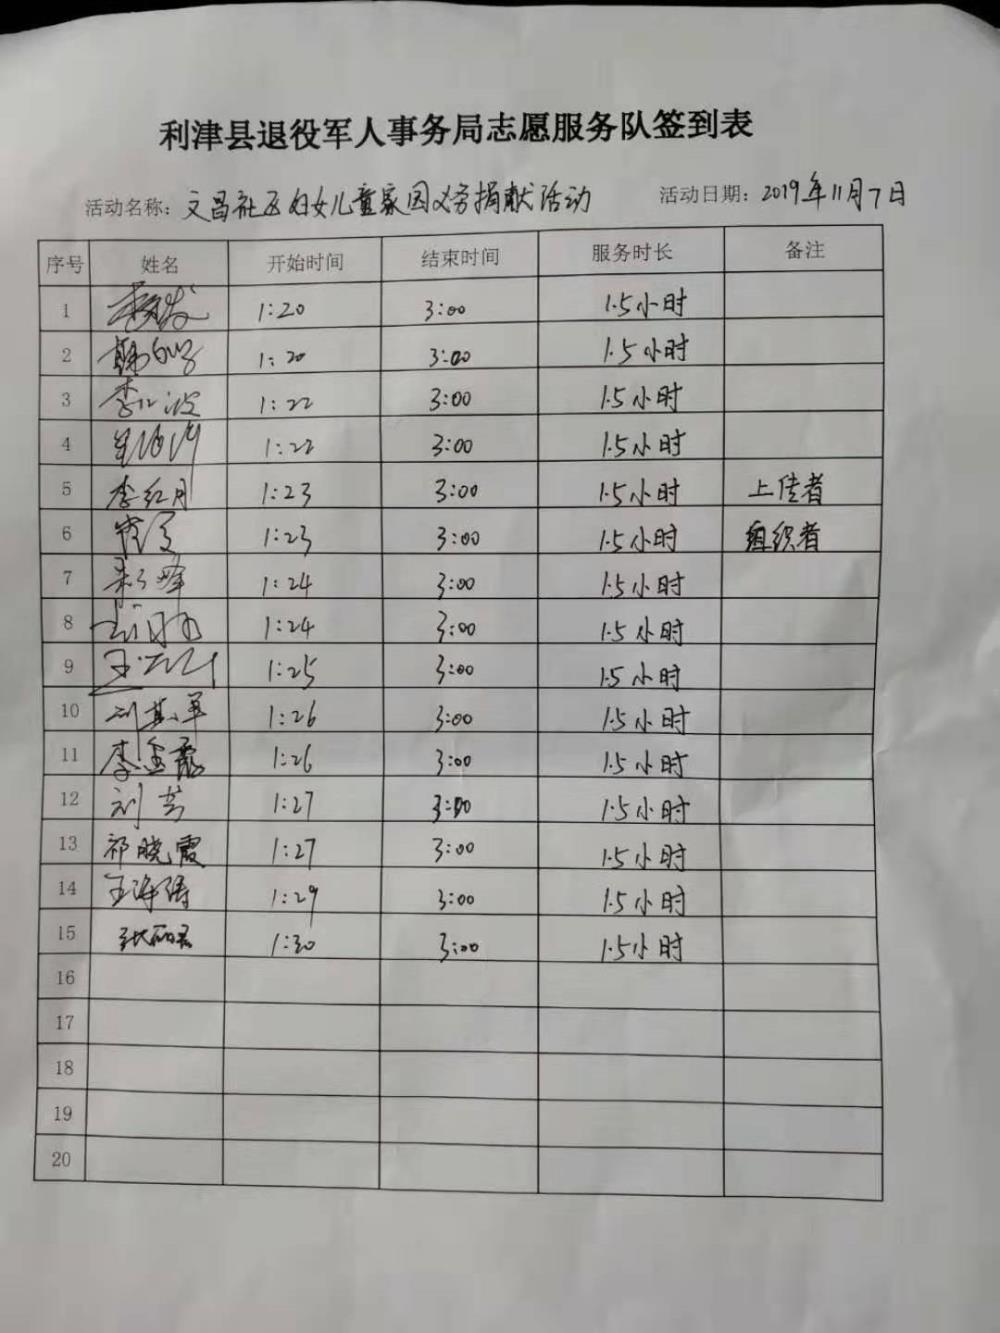 利津县退役军人事务局志愿服务队签到表
活动名称：文昌社区妇女儿童家园义务捐献活动 活动日期：2019年11月7日
序号 姓名 开始时间 结束时间 服务时长 备注
1 1:20 3:00 1.5小时
2 1:20 3:00 1.5小时
3 1:22 3:00 1.5小时
4 1:22 3:00 1.5小时
5 李红月 1:23 3:00 1.5小时 上传者
6 1:23 3:00 1.5小时 组织者
7 1:24 3:00 1.5小时
8 1:24 3:00 1.5小时
9 1:25 3:00 1.5小时
10 1:26 3:00 1.5小时
11 李金霞 1:26 3:00 1.5小时
12 刘芳 1:27 3:00 1.5小时
13 祁晓霞 1:27 3:00 1.5小时
14 王海涛 1:29 3:00 1.5小时
15 1:30 3:00 1.5小时
16
17
18
19
20